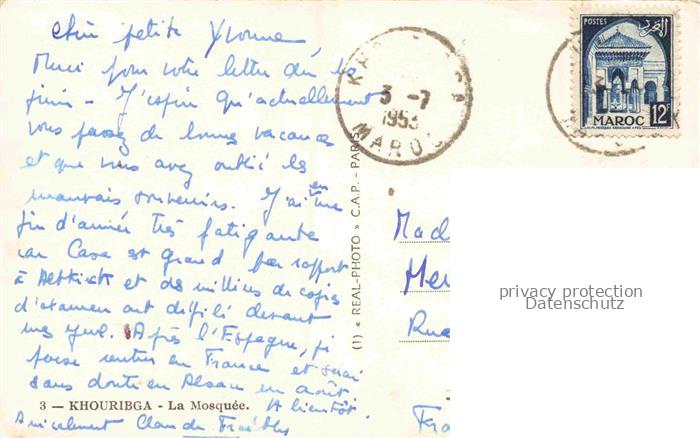 Chère petite Yvonne,
Merci pour votre lettre du 12
juin - J'espère qu'actuellement
vous passez de bonnes vacances
et que vous avez oublié les
mauvais souvenirs. J'ai eu une
fin d'année très fatigante
car Casa est grand par rapport
à Altkirch et des milliers de copies
d'examen ont défilé devant
mes yeux. Après l'Espagne, je
pense rentrer en France et serai
sans doute en Alsace en août.
A bientôt.
Amicalement Claude
3 — KHOURIBGA - La Mosquée.
(1) « REAL-PHOTO » C.A.P. - PARIS
3 -7
1953
MAROC
POSTES
MAROC 12F
Mad
Rue
Fra
privacy protection
Datenschutz